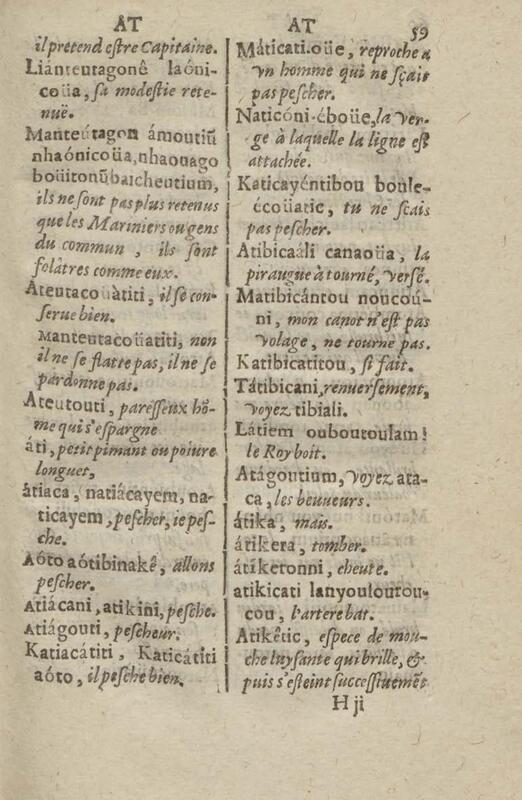 AT
il pretend eſtre Capitaine.
Liánteutagonê laóni-
coüa, ſa modeſtie rete-
nuë.
Manteutagon ámoutiũ
nhaónicoüa, nhaouago
boüitonũbaicheutium,
ils ne ſont pas plus retenus
que les Mariniers ou gens
du commun, ils ſont
folâtres comme eux.
Ateutacoüàtiti, il ſe con-
ſerue bien.
Manteutacoüatiti, non
il ne ſe flatte pas, il ne ſe
pardonne pas.
Ateutouti, pareſſeux hõ-
me qui s'eſpargne
áti, petit pimant ou poiure
longuet,
átiaca, natiácayem, na-
ticayem, peſcher, ie peſ-
che.
Aóto aótibinakê, allons
peſcher.
Atiácani, atikini, peſche.
Atiágouti, peſcheur.
Katiacátiti, Katicátiti
aóto, il peſche bien.
AT 59
Máticati.oüe, reproche a
vn homme qui ne ſçait
pas peſcher.
Naticóni-éboüe, la ver-
ge à laquelle la ligne eſt
attachée.
Katicayéntibou boule-
écoüatic, tu ne ſcais
pas peſcher.
Atibicaáli canaoüa, la
piraugue à tourné, verſé.
Matibicántou noucoú-
ni, mon canot n'eſt pas
volage, ne tourne pas.
Katibicatitou, ſi fait.
Tátibicani, renuerſement,
voyez tibiali.
Látiem ouboutoulam!
le Roy boit.
Atágoutium, voyez ata-
ca, les beuueurs.
átika, mais.
átikera, tomber.
átikeronni, cheute.
atikicati lanyouloutou-
cou, l'artere bat.
Atikêtic, eſpece de mou-
che luyſante qui brille, &
puis s'eſteint ſucceſſiuemẽt
H ji